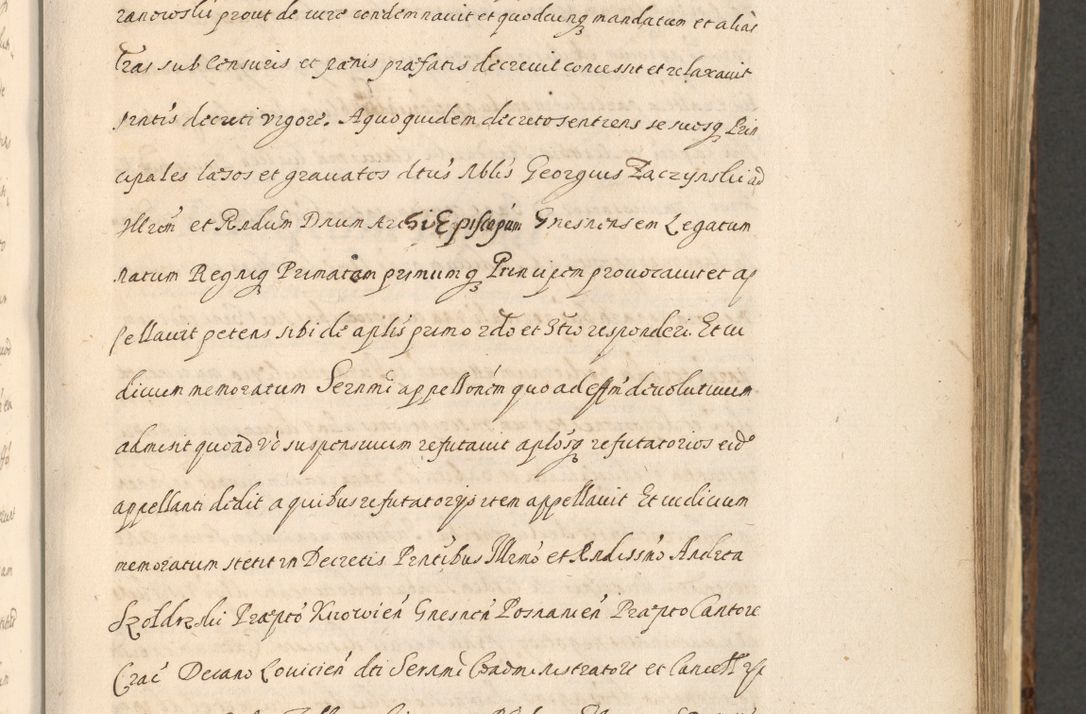 ranowski prout de iure condemnauit et quodcunq mandatum et alias
Lras sub Censuris et pænis præfatis decreuit concessit et relaxauit
pntis decreti vigore. A quo quidem decreto sentiens se suosq Prin
cipales læsos et grauatos dtus Nblis Georgius Zaczynski ad
Illrem et Rndum Dnum Archi Episcopum Gnesnensem Legatum
natum Regniq Primatem primumq Principem prouocauit et ap
pellauit petens sibi de aplis primo 2do et 3tio responderi. Et iu
dicium memoratum Sernmi appellonem quo ad effm deuolutiuum
admisit quo ad vo suspensiuum refutauit aplosq refutatorios eidē
appellanti dedit a quibus refutatorijs item appellauit Et iudicium
memoratum stetit in Decretis Pntibus Illrmo et Rndissimo Andrea
Szoldrski Præpto Kuiowien Gnesnen Posnanien Præpto Cantore
Crac Decano Louicien dti Sernmi Coadministratore et Cancell